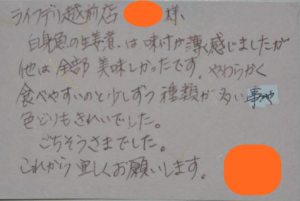 ライフデリ越前店 様、
白身魚の生姜煮は味付が薄く感じましたが
他は全部美味しかったです。やわらかく
食べやすいのと少しずつ種類が多い事や
色どりもきれいでした。
ごちそうさまでした。
これからも宜しくお願いします。